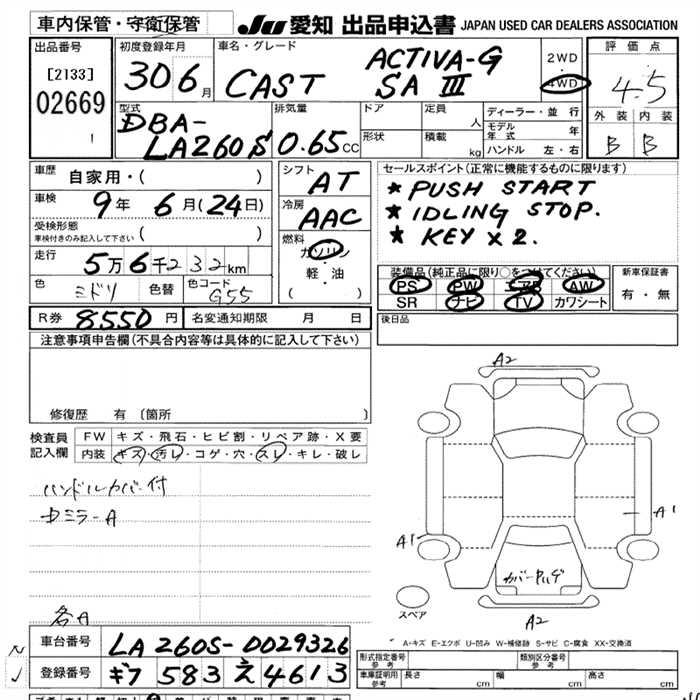 車内保管・守衛保管
JU 愛知 出品申込書 JAPAN USED CAR DEALERS ASSOCIATION
出品番号
[2133]
02669
1
初度登録年月
30 6月
車名・グレード
CAST ACTIVA-G
SA III
2WD
・
4WD
評価点
4.5
外装 内装
B B
型式
DBA-
LA260S
排気量
0.65cc
ドア
形状
定員
人
積載
kg
ディーラー・並行
モデル年式 年
ハンドル 左・右
車歴
自家用・( )
車検
9年 6月(24日)
受検形態
車検付きのみ記入して下さい ( )
走行
5万6千232km
色
ミドリ
色替
色コード
G55
シフト
AT
冷房
AAC
燃料
ガソリン
・
軽・油
( )
セールスポイント(正常に機能するものに限ります)
★ PUSH START
★ IDLING STOP.
★ KEY x 2.
装備品(純正品に限り○をつけてください)
PS PW エアB AW
SR ナビ TV カワシート
新車保証書
有・無
R券 8550円
名変通知期限 月 日
後日品
注意事項申告欄(不具合内容等は具体的に記入して下さい)
修復歴 有 〔箇所 〕
検査員
記入欄
FW キズ・飛石・ヒビ割・リペア跡・X要
内装 キズ・汚レ・コゲ・穴・スレ・キレ・破レ
ハンドルカバー付
ミラーA
各A
A2
A1
A1
A2
スペア
A-キズ E-エクボ U-凹み W-補修跡 S-サビ C-腐食 XX-交換済
車台番号 LA260S-0029326
登録番号 ギフ 583 え 4613
形式指定番号
参考
類別区分番号
参考
車庫証明用
参考
長さ cm
幅 cm
高さ cm